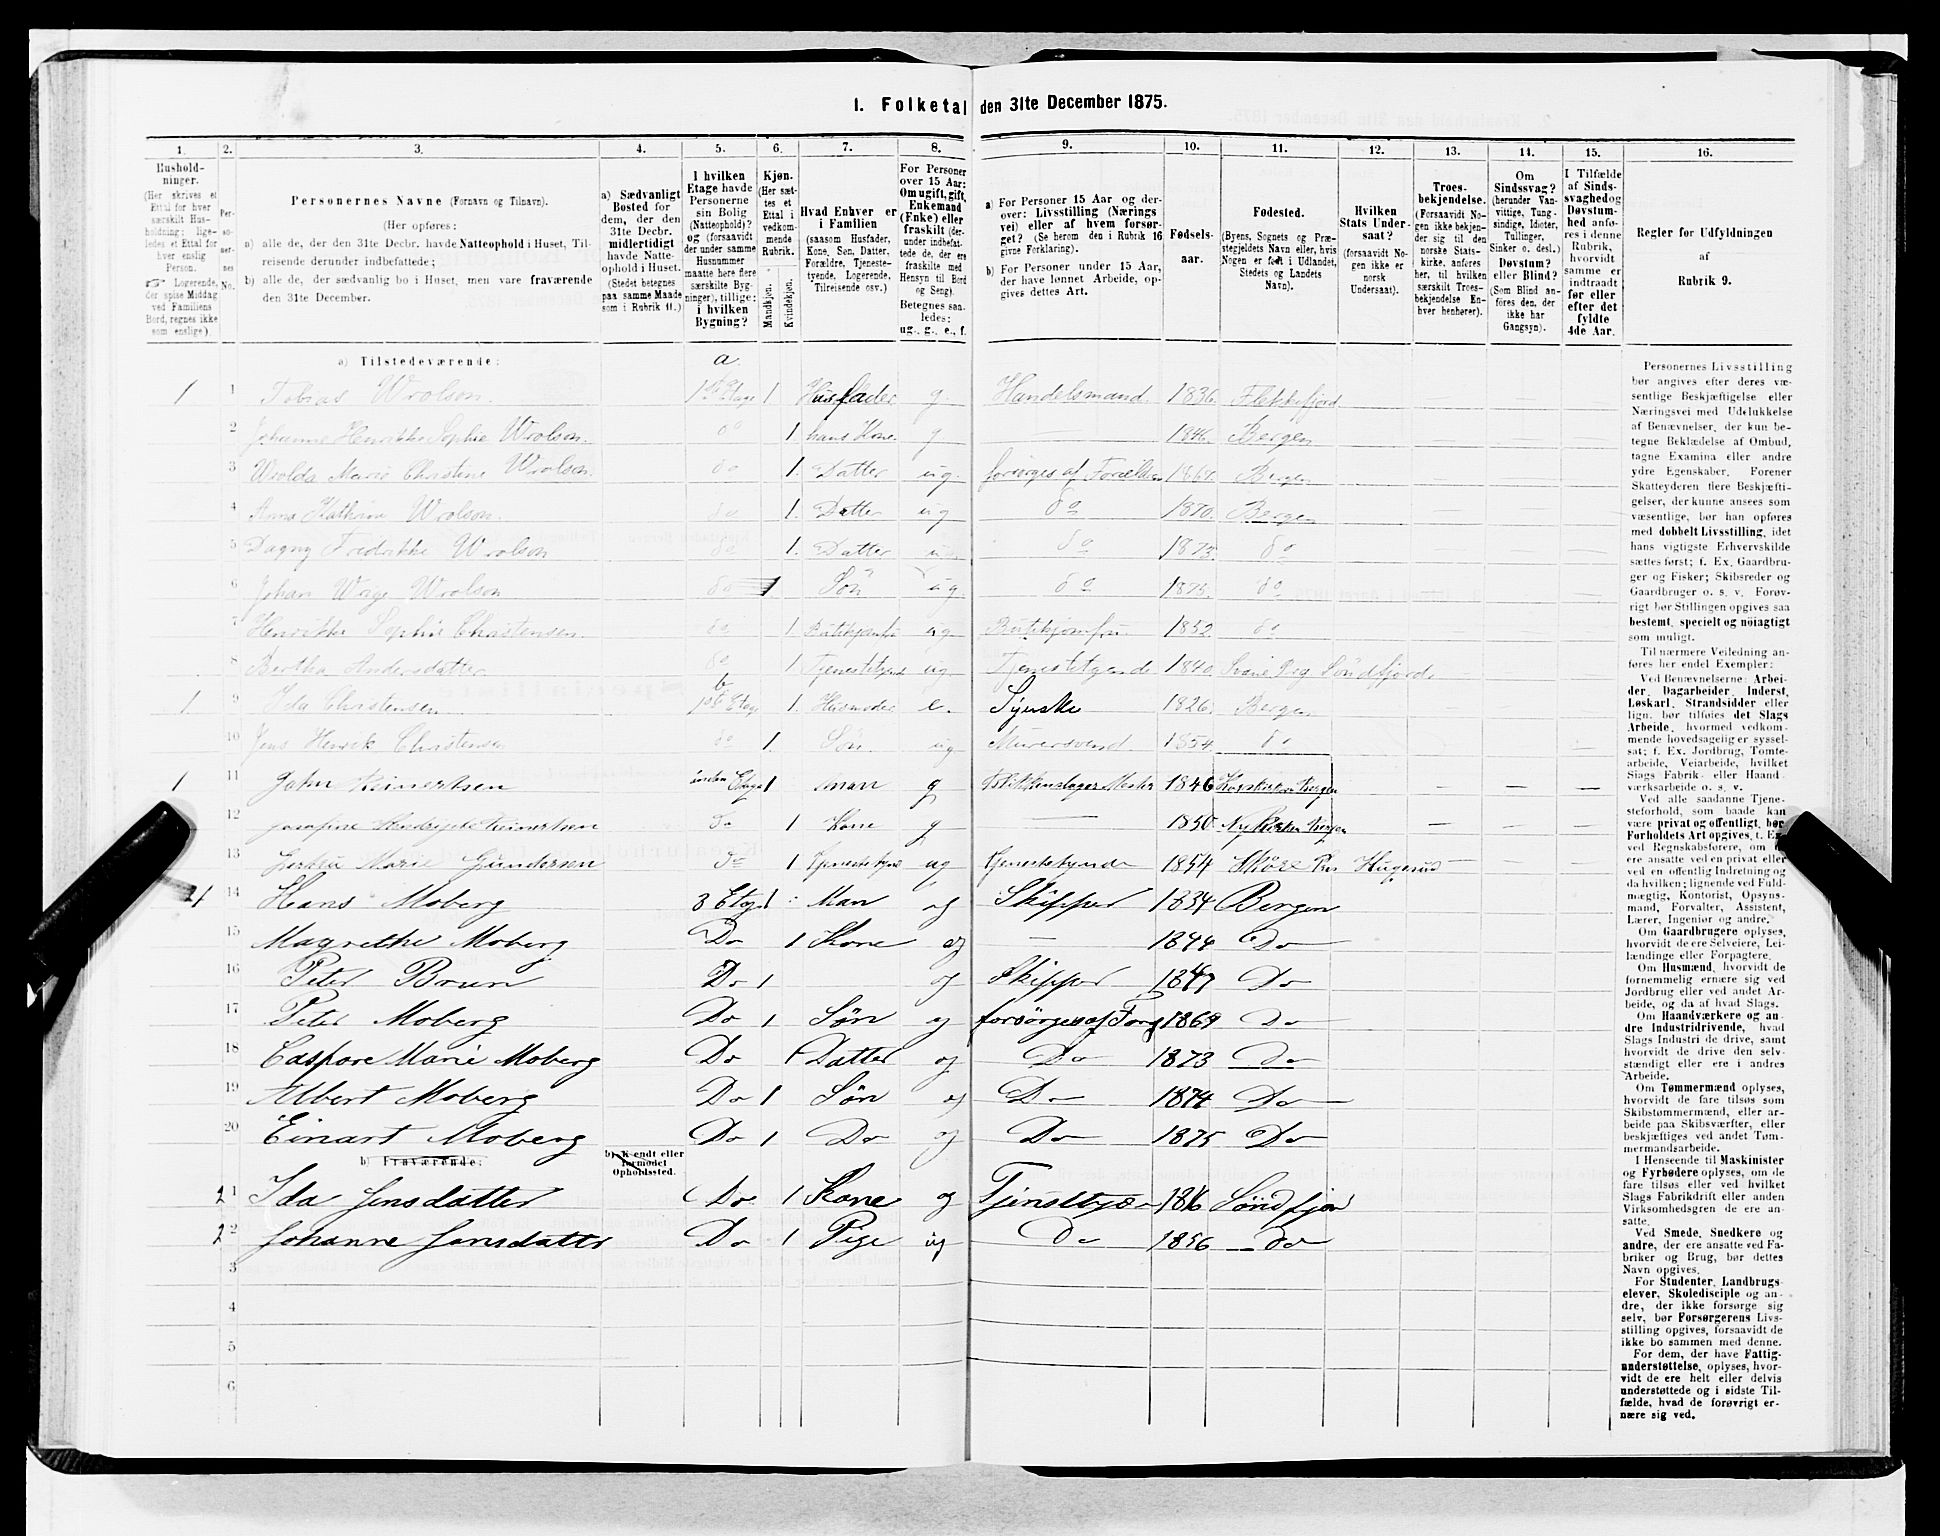 1. Folketal den 31te December 1875.
1. 2. 3. 4. 5. 6. 7. 8. 9. 10. 11. 12. 13. 14. 15. 16.
Hushold-
ninger.
(Her skrives et
Ettal for hver
særskilt Hus-
holdning; lige-
ledes et Ettal for
hver enslig
Person.
☞ Logerende,
der spise Middag
ved Familiens
Bord, regnes ikke
som enslige).
Per-
so-
ner-
nes
No.
Personernes Navne (Fornavn og Tilnavn).
(Her opføres:
a) alle de, der den 31te Decbr. havde Natteophold i Huset, Til-
reisende derunder indbefattede;
b) alle de, der sædvanlig bo i Huset, men vare fraværende
den 31te December.
a) Sædvanligt
Bosted for
dem, der den
31te Decbr.
midlertidigt
havde Natte-
ophold i Huset.
(Stedet betegnes
paa samme Maade
som i Rubrik 11.)
I hvilken
Etage havde
Personerne
sin Bolig
(Natteophold)?
og (forsaavidt
der under samme
Husnummer
maatte høre flere
særskilte Byg-
ninger), tillige:
i hvilken
Bygning?
Kjøn.
(Her sæt-
tes et
Ettal i
vedkom-
mende
Rubrik.
Mandkjøn.
Kvindekjøn.
Hvad Enhver er
i Familien
(saasom Husfader,
Kone, Søn, Datter,
Forældre, Tjeneste-
tyende, Logerende,
Tilreisende osv.)
For Personer
over 15 Aar:
Om ugift, gift,
Enkemand
(Enke) eller
fraskilt (der-
under indbefat-
tede de, der ere
fraskilte med
Hensyn til Bord
og Seng).
Betegnes saa-
ledes:
ug., g., e., f.
a) For Personer 15 Aar og der-
over: Livsstilling (Nærings
vei) eller af hvem forsør-
get? (Se herom den i Rubrik 16
givne Forklaring).
b) For Personer under 15 Aar,
der have lønnet Arbeide, op-
gives dettes Art.
Fødsels-
aar.
Fødested.
(Byens, Sognets og Præ-
stegjeldets Navn eller, hvis
Nogen er født i Udlandet,
Stedets og Landets
Navn).
Hvilken
Stats Under-
saat?
(forsaavidt No-
gen ikke er
norsk
Undersaat).
Troes-
bekjendelse.
(Forsaavidt No-
gen ikke bekjen-
der sig til den
norske Stats-
kirke, anføres
her, til hvilken
særskilt Troes-
bekjendelse En-
hver henhører).
Om
Sindssvag?
(herunder Van-
vittige, Tung-
sindige, Idioter,
Tullinger,
Sinker o. desl.)
Døvstum?
eller Blind?
(Som Blind an-
føres den, der
ikke har
Gangsyn).
I Tilfælde
af Sinds-
svaghed og
Døvstum-
hed anfø-
res i denne
Rubrik,
hvorvidt
samme er
indtraadt
før eller
efter det
fyldte
4de Aar.
Regler for Udfyldningen
af
Rubrik 9.
a) Tilstedeværende: a.
1 1 Tobias Wrolson. 1ste Etage 1 Husfader g. Handelsmand. 1836. Flekkefjord
2 Johanne Henrikke Sophie Wrolson. do 1. hans Kone. g — 1846. Bergen
3 Wrolda Marie Christine Wrolson. do 1. Datter ug. forsørges af Forældrene Bergen
4 Anna Kathrine Wrolson. do 1. Datter ug do 1870. Bergen
5 Dagny Fredrikke Wrolson do 1. Datter do 1873. do
6 Johan Wrolson do 1 Søn ug. do 1875. do
7 Henrikke Sophie Christensen. do 1 ug 1852 do
8 Bertha Andersdatter do 1 Tjenestetyende ug Tjenestetyende 1840. Søndfjord.
b
1 9 Ida Christensen 1ste Etage 1. Husmoder e. Syerske 1826. Bergen
10 Jens Henrik Christensen do 1. Søn. ug Murersvend. 1854. do
1 11 John Reinertsen anden Etage 1 man g Blikkenslager Mester 1846 Korskirken Bergen
12 Josefine Reinertsen do 1 Kone g — 1850 Nykirken Bergen
13 Marie Gundersen do 1 Tjenestetyende ug tjenestetyende 1854
14 Hans Moberg 3 Etage 1 Man g Skipper 1834 Bergen
15 Magrethe Moberg Do 1 Kone g — 1844 Do
16 Peter Brun Do 1 Skipper Do
17 Peter Moberg Do 1 Søn forsørges af Do
18 Caspare Marie Moberg Do 1 Datter Do 1873 Do
19 Albert Moberg Do 1 Søn Do 1874 Do
20 Einart Moberg Do 1 Do Do 1875 Do
b) Fraværende: b) Kjendt eller
formodet
Opholdssted.
2 1 Ida Jensdatter Do 1 Kone g
2 2 Johanne Jansdatter Do 1 Pige ug Do 1856 Do
3
4
5
6
Personernes Livsstilling
bør angives efter deres væ-
sentlige Beskjæftigelse eller
Næringsvei med Udelukkelse
af Benævnelser, der kun be-
tegne Beklædelse af Ombud,
tagne Examina eller andre
ydre Egenskaber. Forener
Skatteyderen flere Beskjæfti-
gelser, der kunne ansees som
væsentlige, bør han opføres
med dobbelt Livsstilling, idet
hans vigtigste Erhvervskilde
sættes først; f. Ex. Gaardbru-
ger og Fisker; Skibsreder og
Gaardbruger o. s. v. Forøv-
rigt bør Stillingen opgives saa
bestemt, specielt og nøiagtigt
som muligt.
Til nærmere Veiledning an-
føres her endel Exempler:
Ved Benævnelserne: Arbei-
der, Dagarbeider, Inderst,
Løskarl, Strandsidder eller
lign. bør tilføies det Slags
Arbeide, hvormed vedkom-
mende hovedsagelig er syssel-
sat; f. Ex. Jordbrug, Tomte-
arbeide, Veiarbeide, hvilket
Slags Fabrik- eller Haand-
værksarbeide o. s. v.
Ved alle saadanne Tjene-
steforhold, som baade kan
være privat og offentligt, bør
Forholdets Art opgives, t. Ex.
ved Regnskabsførere, om
ere ansatte ved en privat eller
ved en offentlig Indretning og
da hvilken; lignende ved Fuld-
mægtig, Kontorist, Opsyns-
mand, Forvalter, Assistent,
Lærer, Ingeniør og andre.
Om Gaardbrugere oplyses,
hvorvidt de ere Selveiere, Lei-
lændinge eller Forpagtere.
Om Husmænd, hvorvidt de
fornemmelig ernære sig ved
Jordbrug eller ved andet Ar-
beide, og da af hvad Slags.
Om Haandværkere og an-
dre Industridrivende, hvad
Slags Industri de drive, samt
hvorvidt de drive den selv-
stændigt eller ere i andres
Arbeide.
Om Tømmermænd oplyses,
hvorvidt de fare tilsøs som
Skibstømmermænd, eller ar-
beide paa Skibsværfter, eller
beskjæftiges ved andet Tøm-
mermandsarbeide.
I Henseende til Maskinister
og Fyrbødere oplyses, om de
fare tilsøs eller ved hvilket
Slags Fabrikdrift eller anden
Virksomhedsgren de ere an-
satte.
Ved Smede, Snedkere og
andre, der ere ansatte ved Fa-
briker og Brug, bør dettes
Navn opgives.
For Studenter, Landbrugs-
elever, Skoledisciple og an-
dre, der ikke forsørge sig
selv, bør Forsørgerens Livs-
stilling opgives, forsaavidt de
ikke bo sammen med denne.
For dem, der have Fattig-
understøttelse, oplyses, hvor-
vidt de ere helt eller delvis
understøttede og i sidste Til-
fælde, hvad de forøvrigt er-
nære sig ved.